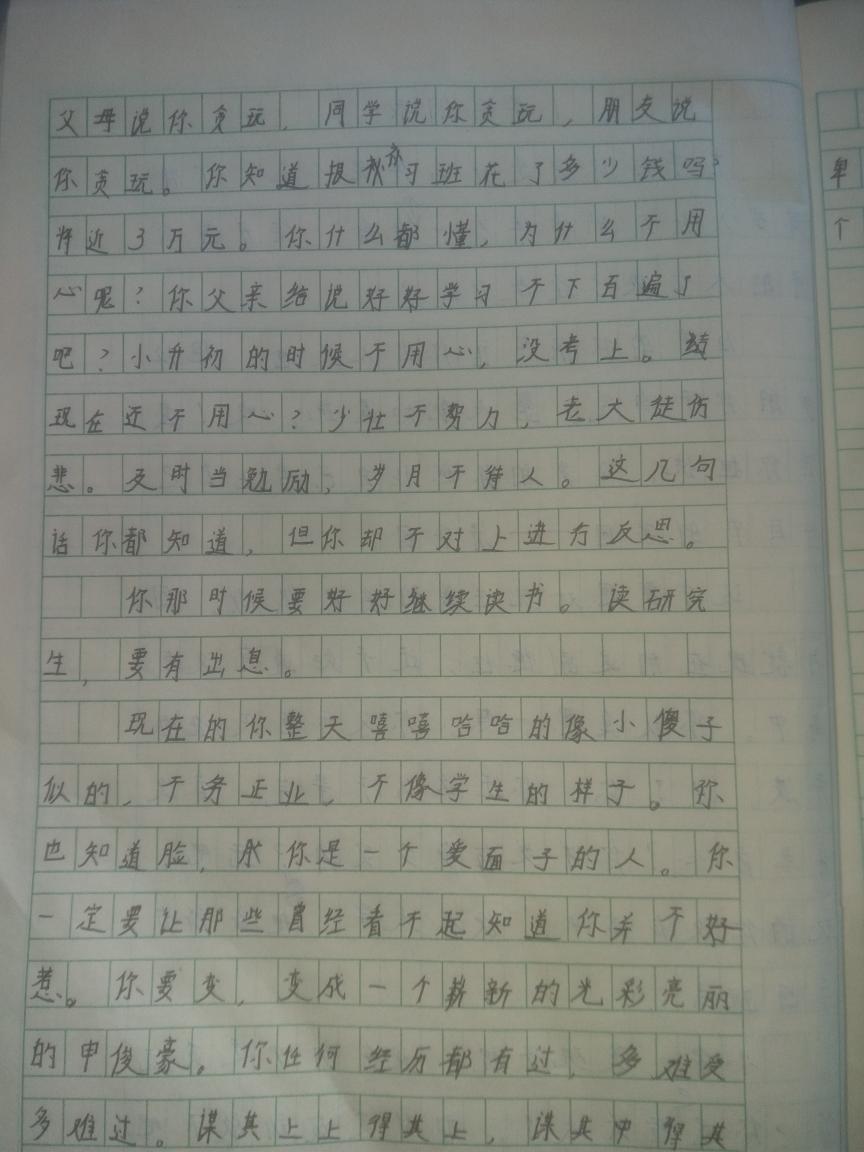 父母说你贪玩，同学说你贪玩，朋友说
你贪玩。你知道报补习班花了多少钱吗？
将近3万元。你什么都懂，为什么不用
心呢？你父亲给说好好学习不下百遍了
吧？小升初的时候不用心，没考上。
现在还不用心？少壮不努力，老大徒伤
悲。及时当勉励，岁月不待人。这几句
话你都知道，但你却不对上进行反思。
你那时候要好好继续读书。读研究
生，要有出息。
现在的你整天嘻嘻哈哈的像小傻子
似的，不务正业，不像学生的样子。你
也知道脸，你是一个爱面子的人。你
一定要让那些曾经看不起知道你并不好
惹。你要变，变成一个崭新的光彩亮丽
的申俊豪。你任何经历都有过，多难受
多难过。谋其上上得其上，谋其中得其
单
个